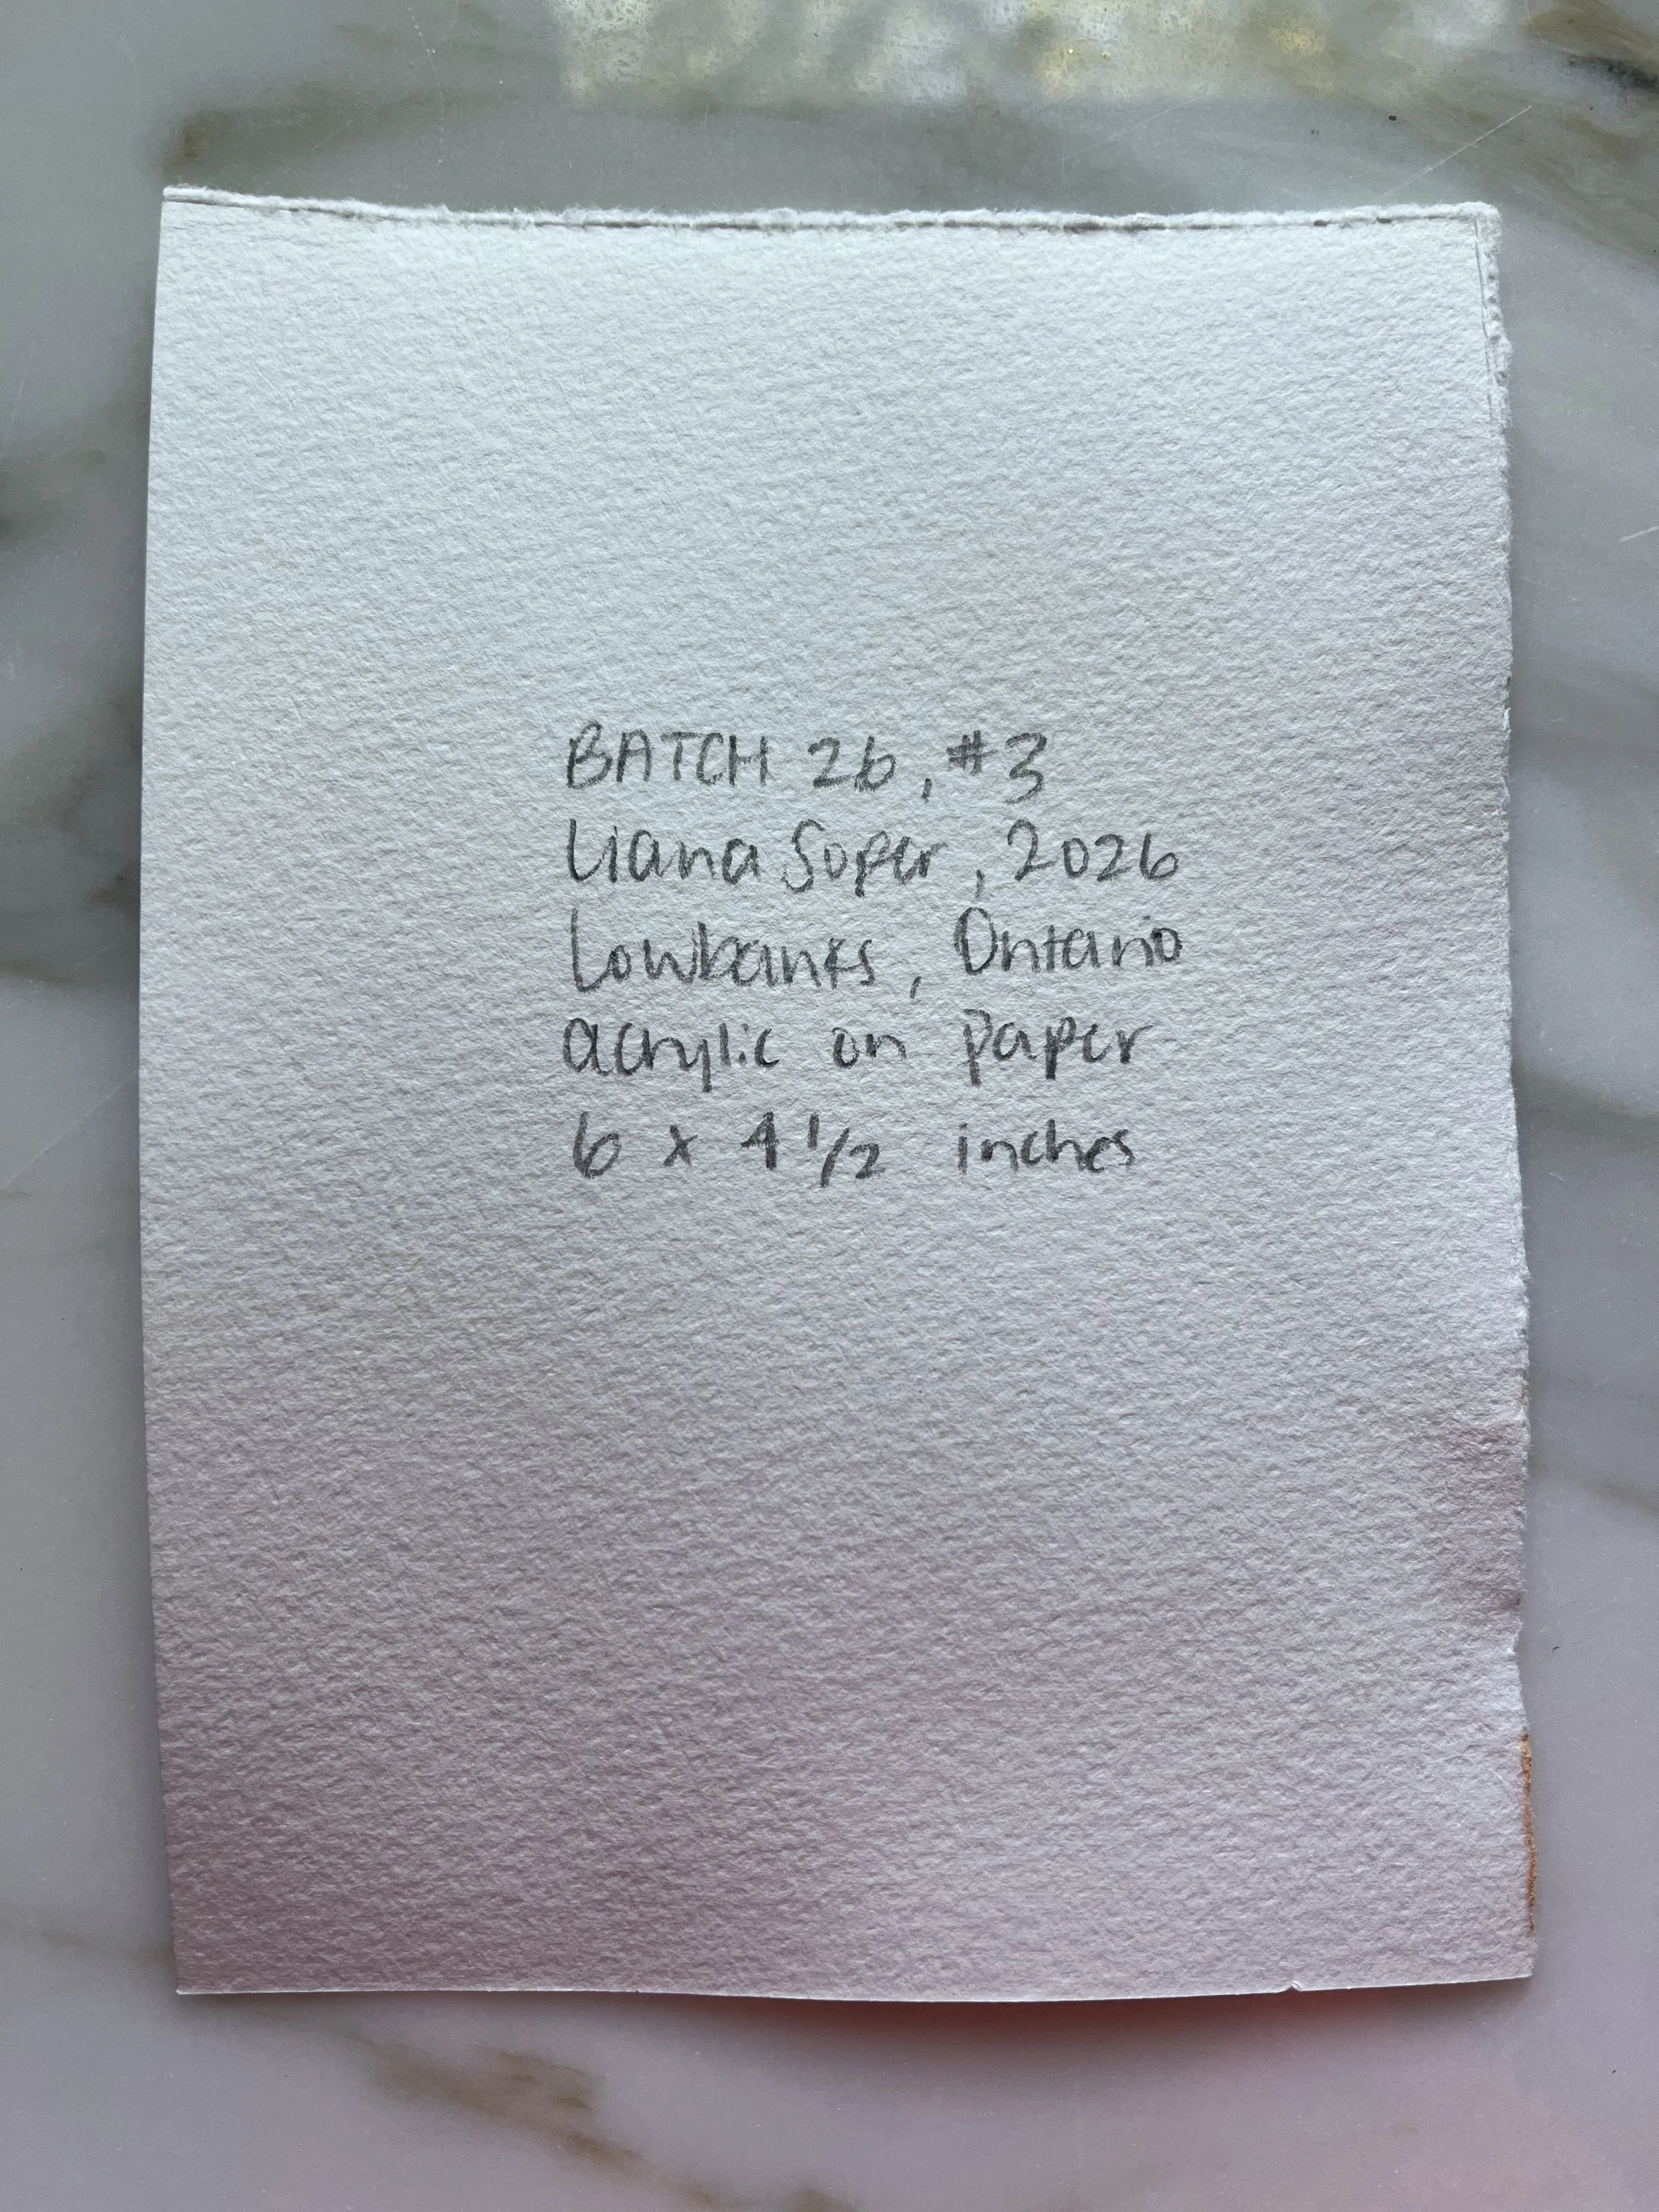 BATCH 26, #3
Liana Soper, 2026
Lowbanks, Ontario
acrylic on paper
6 x 4 1/2 inches